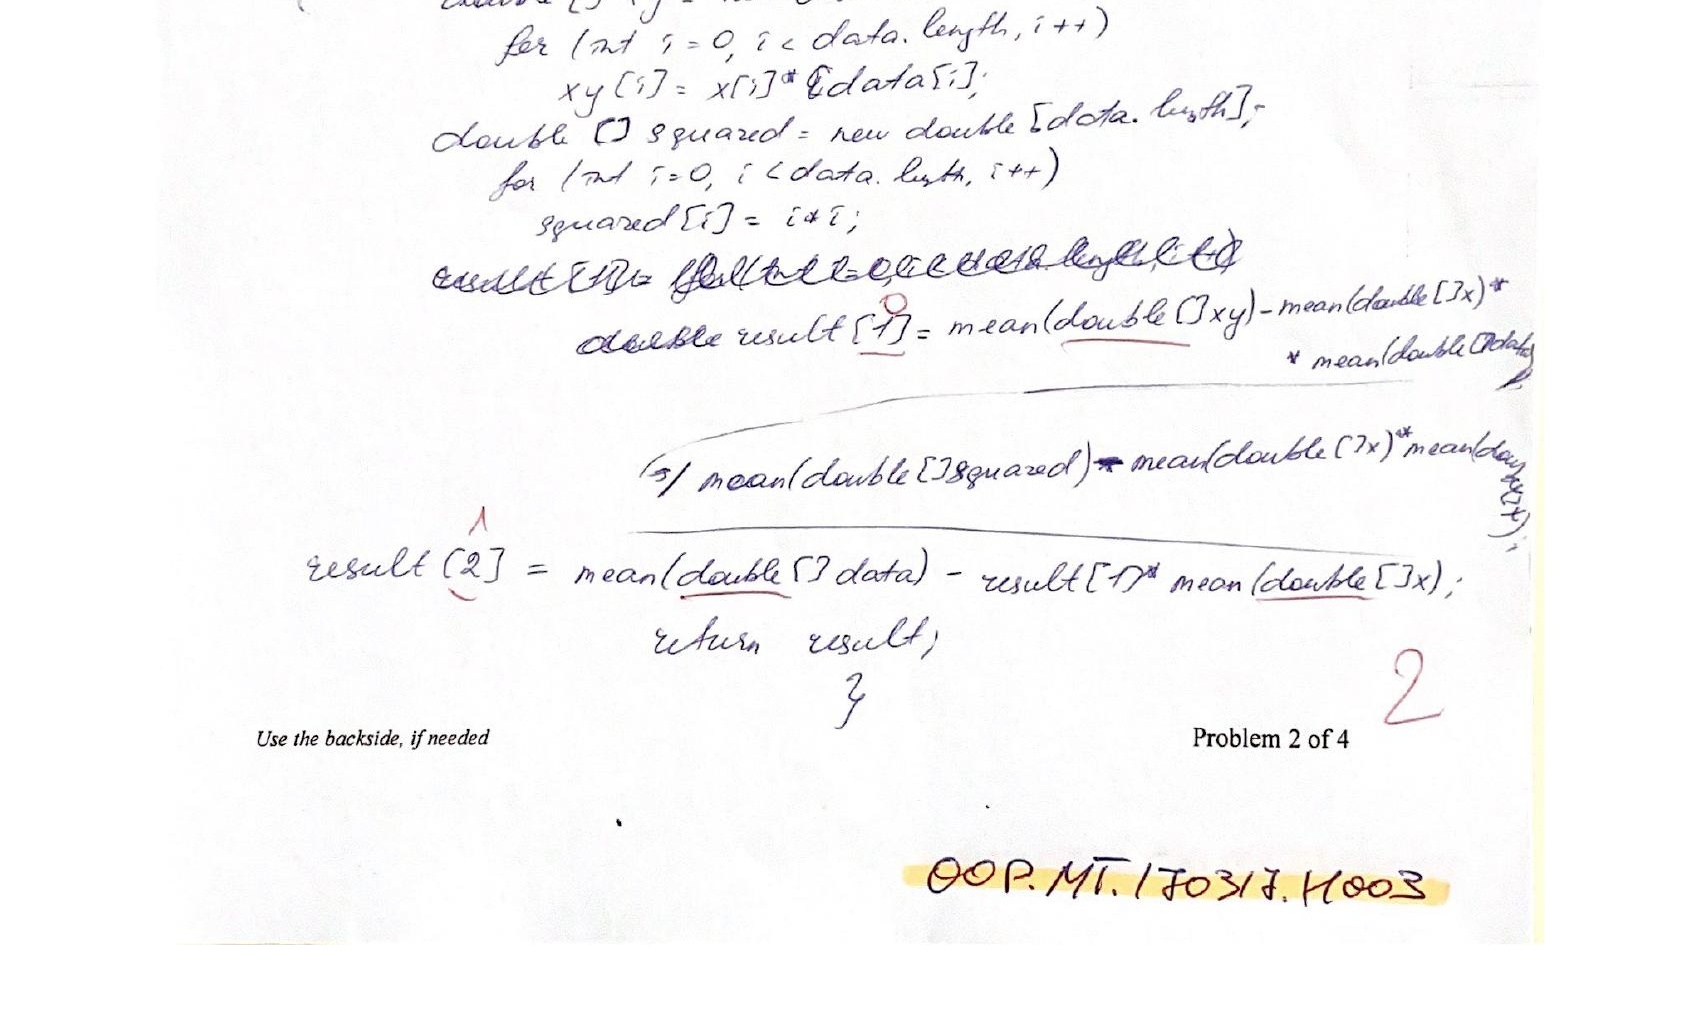 for (int i=0, i< data.length, i++)
xy[i]= x[i]* data[i];
double [] squared = new double [data.length];
for (int i=0, i<data.length, i++)
squared[i] = i*i;
0
result[1]= mean(double []xy)-mean(double []x)*
* mean(double []data)
(s) mean(double []squared)- mean(double []x)*mean(double []x);
1
result [2] = mean(double [] data) - result[1]* mean (double []x);
return result;
}
2
Use the backside, if needed
Problem 2 of 4
OOP.MT.170317.H003